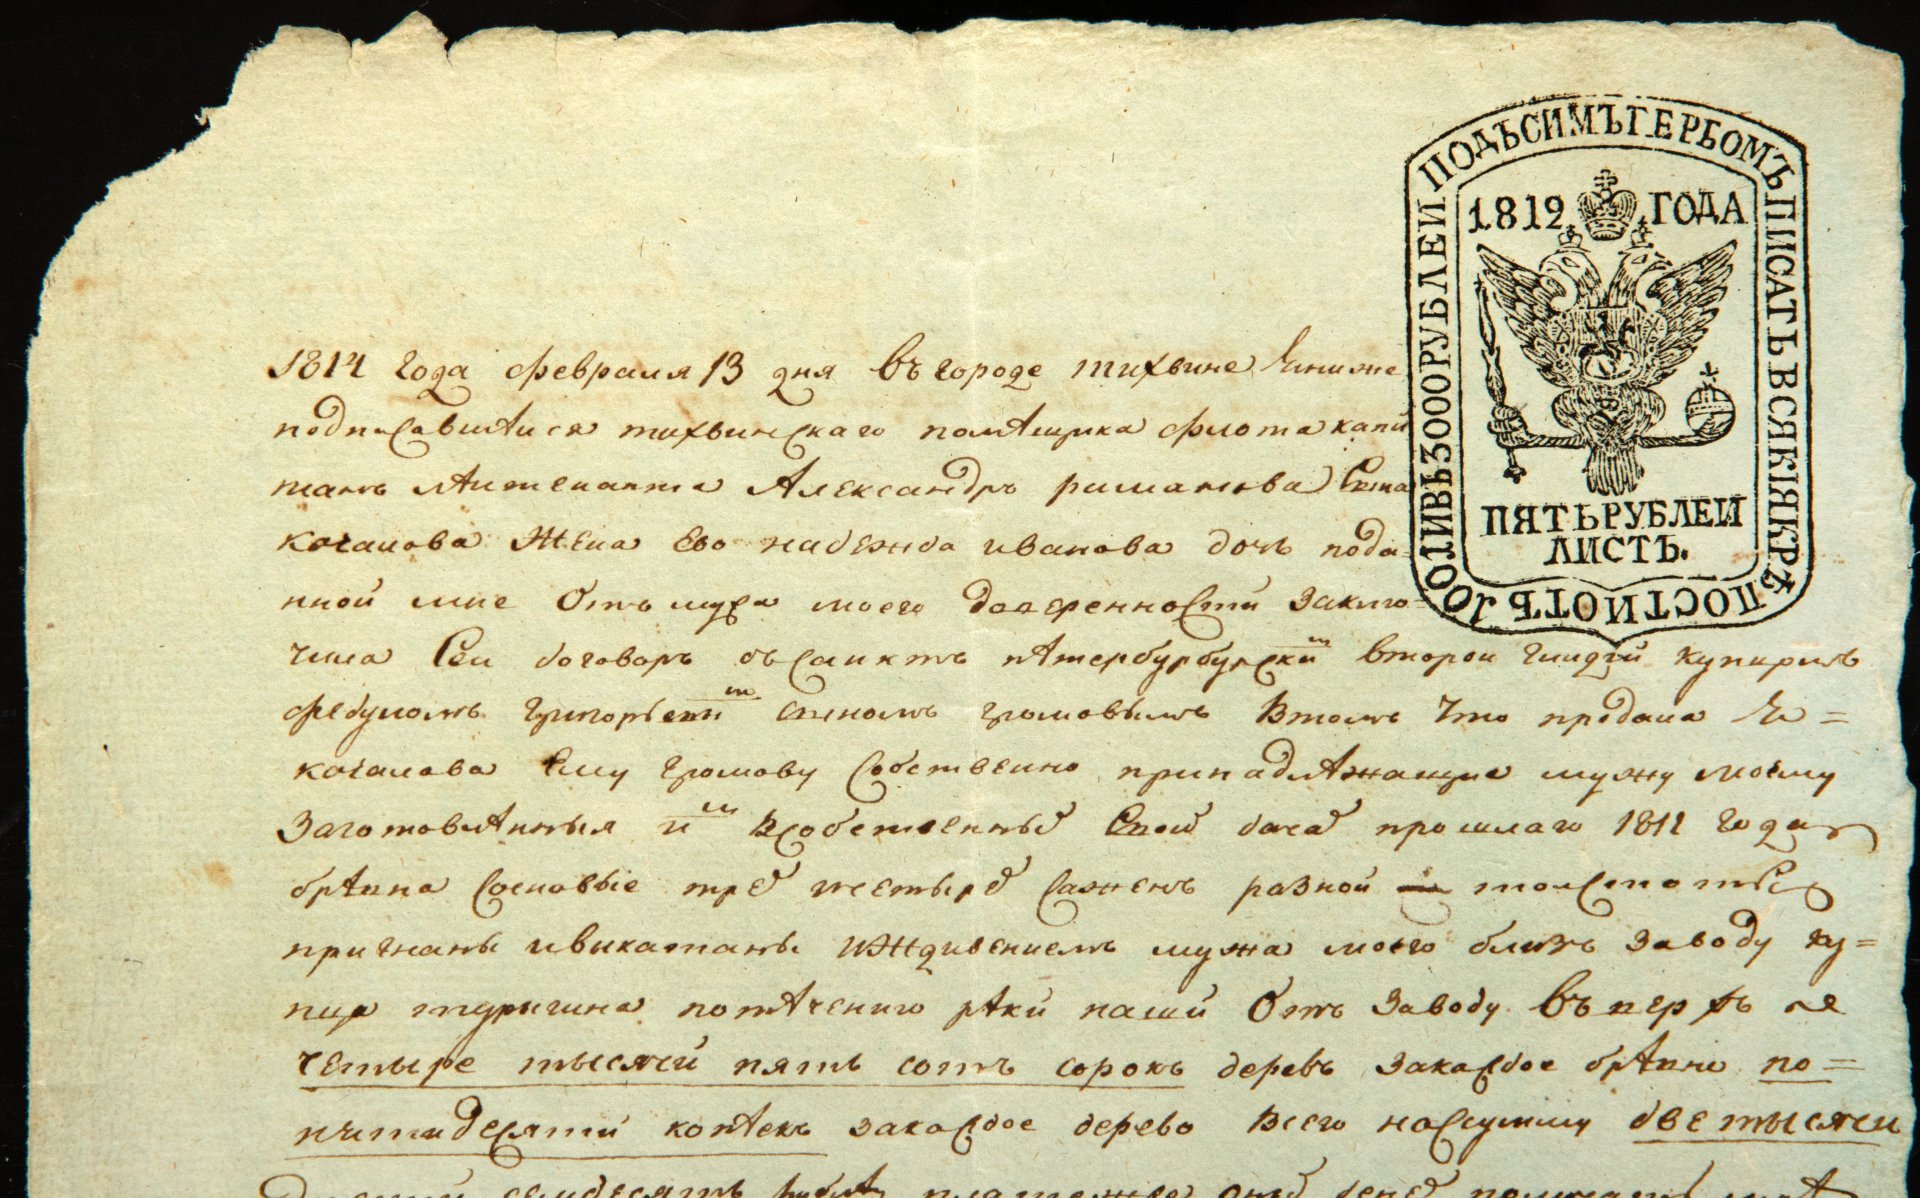 ПОДЪ СИМЪ ГЕРБОМЪ ПИСАТЬ ВСЯКІЯ КРѢПОСТИ ОТЪ 1001 ДО 3000 РУБЛЕИ
1812 ГОДА
ПЯТЬ РУБЛЕИ
ЛИСТЪ.
1814 года февраля 13 дня въ городе тихвине
подписавшаяся тихвинскаго помѣщика флота капи
танъ лѣитенанта Александръ
качалова жена ево надежда иванова дочь подан
ной мне отъ мужа моего доверенности заклю=
чила сеи договоръ съ санктъ пѣтербурбурски второи гилдии купцомъ
федуломъ григорьеви сыномъ громовымъ втомъ что продала я=
качалова ему громову собственно принадлѣжащие мужу моему
заготовлѣнныя и всобственный даче прошлаго 1812 года
брѣвна сосновые трех ичетырех сажень разной толстоты
пригнаны ивыкатаны иждивениемъ мужа моего близь заводу ку=
пца потѣчению рѣки паши отъ заводу въ верхъ
четыре тысячи пять сотъ сорокъ деревъ закаждое брѣвно по=
пятидесяти копѣекъ закаждое дерево всего насумму две тысячи
двести семдесятъ рублей